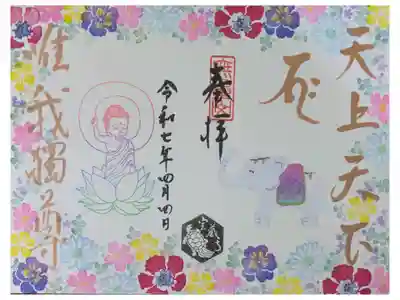 天上天下
奉拝
令和七年四月四日
唯我獨尊